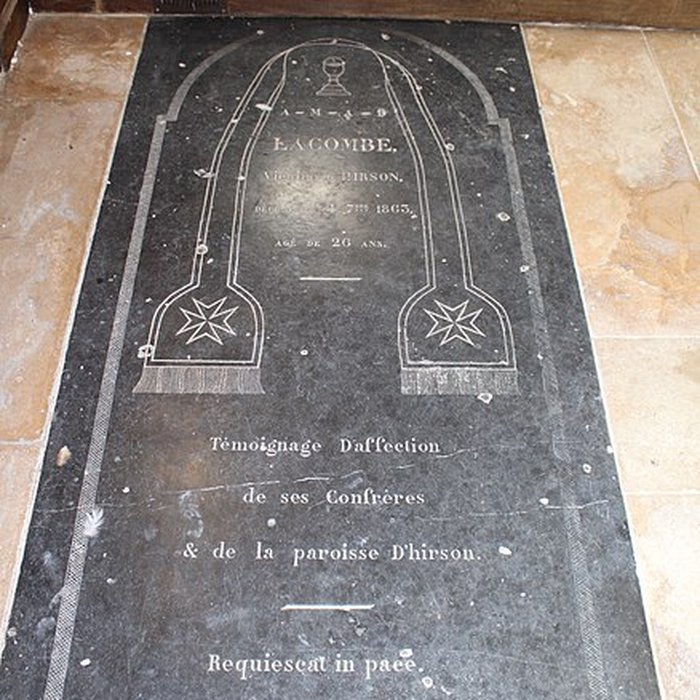 A-M-J-9
LACOMBE,
Vicaire D'HIRSON,
DÉCÉDÉ 4 7bre 1863,
AGÉ DE 26 ANS.
Témoignage D'affection
de ses Confrères
& de la paroisse D'hirson.
Requiescat in pace.